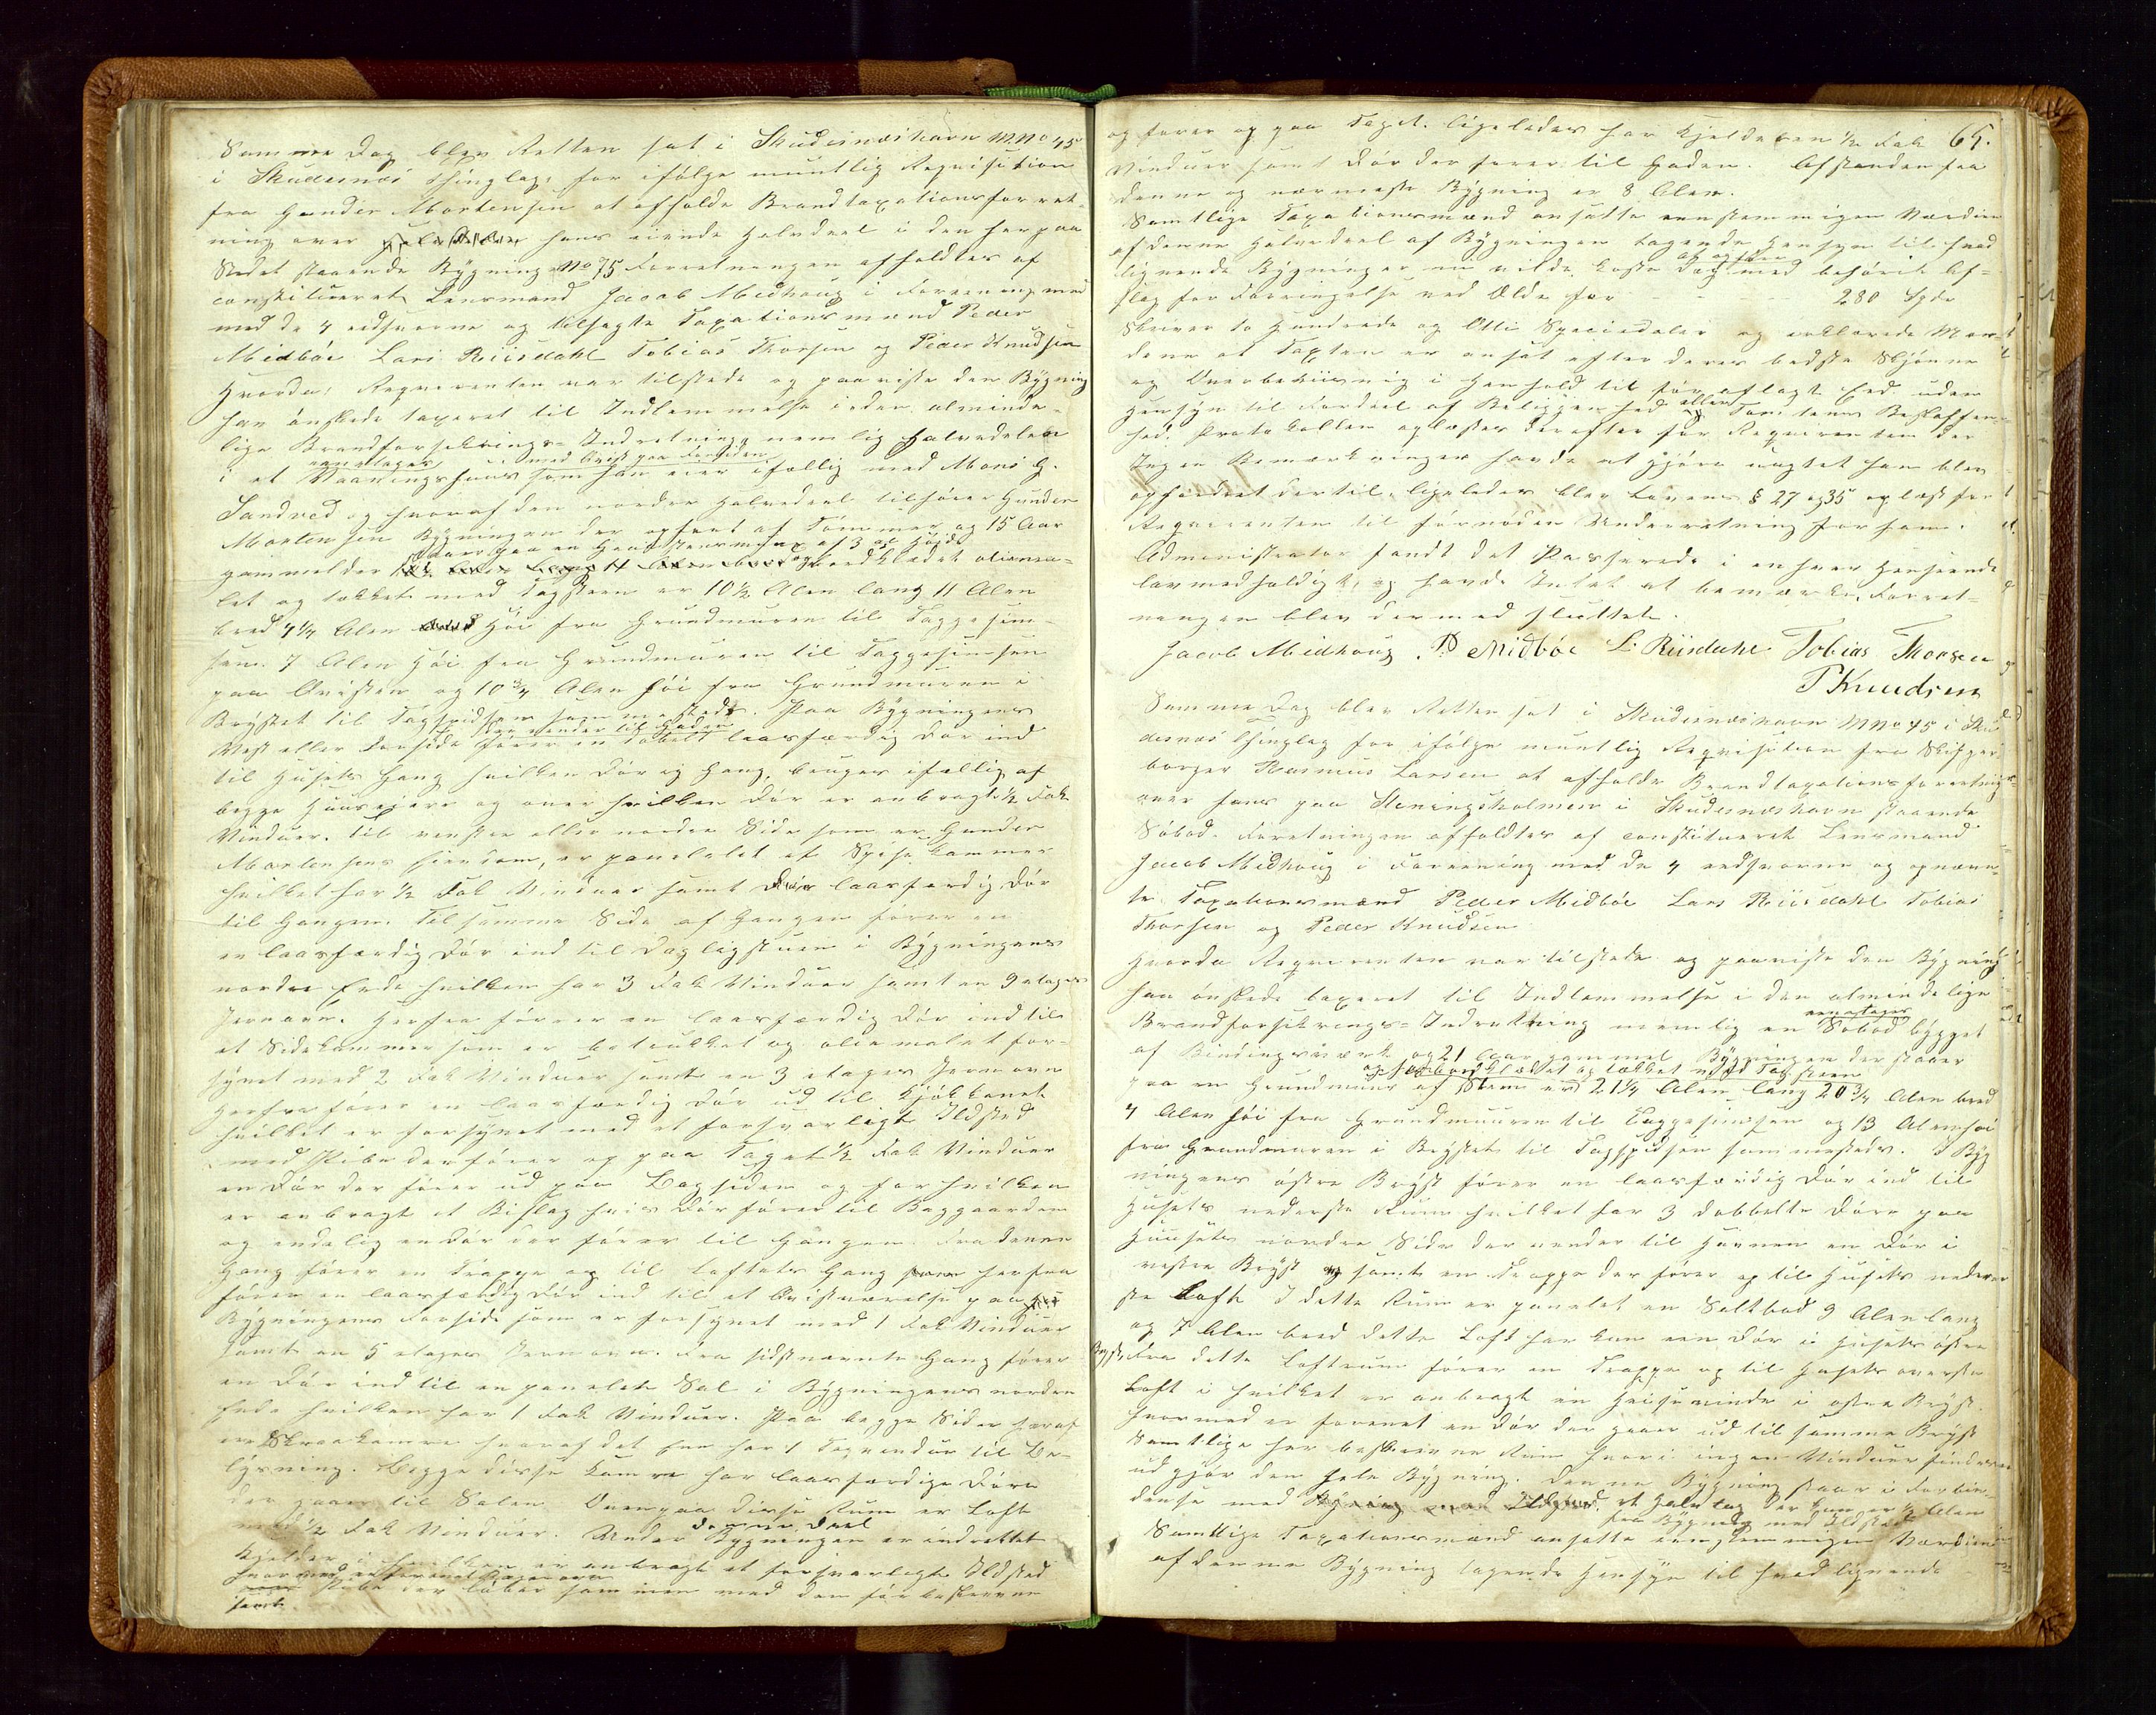 Samme Dag blev Retten sat i Skudesnæshavn M No 45
i Skudesnæs Thinglag for ifølge mundtlig Requisition
fra Gunder Mortensen at afholde Brandtaxationsforret-
ning over hans eiende Halvdeel i den her paa
Stedet staaende Bygning No 75 Forretningen afholdtes af
constitueret Lensmand Jacob Midhoug i Forening med
med de 4 edsvorne og tilsagte Taxationsmænd Peder
Midböe Lars Riisdahl Tobias Thorsen og Peder Knudsen
Hvorda Reqvirenten var tilstede og paaviste den Bygning
han önskede taxeret til Indlemmelse i den alminde-
lige Brandforsikrings-Indretning, nemlig Halvdelen
i et eenetages Vaaningshuus med Qvist paa Forsiden som han eier ifællig med Mons G.
Sandved og hvoraf den nordre Halvdeel tilhører Gunder
Mortensen Bygningen der opført af Tømmer og 15 Aar
gammel der staaer paa en Graastensmuur af 3 al Høide og bordklædet oliema-
let og tækket med Tagsteen er 10½ Alen lang 11 Alen
bred 4¼ Alen Høi fra Grundmuren til Taggesim-
sen 7 Alen Høi fra Grundmuren til Taggesimsen
paa Qvisten og 10¾ Alen høi fra Grundmuren i
Brystet til Tagspidsen sammesteds. Paa Bygningens
Vest eller Forside der vender til Gaden fører en dobelt laasfærdig Dør ind
til Husets Gang hvilken Dør og Gang bruges ifællig af
begge Huuseiere og over hvilken Dør er anbragt ½ Fak
Vinduer. Til venstre eller nordre Side som er Gunder
Mortensens Eiendom, er panelelet et Spisekammer
hvilket har ½ Fak Vinduer samt laasfærdig Dør
til Gangen. Til samme Side af Gangen fører en
en laasfærdig Dør ind til Dagligstuen i Bygningens
nordre Ende hvilken har 3 Fak Vinduer samt en 9 etages
Jernovn. Herfra fører en laasfærdig Dør ind til
et Sidekammer som er betrukket og oliemalet for-
synet med 2 Fak Vinduer samt en 3 etages Jernovn
Herfra fører en laasfærdig Dør ud til Kjøkkenet
hvilket er forsynet med et forsvarligt Ildsted
med Pibe der fører op paa Taget ½ Fak Vinduer
en Dør der fører ud paa Bagsiden og for hvilken
er anbragt et Bislag hvis Dør fører til Baggaarden
og endelig en Dør der fører til Gangen. Fra denne
Gang fører en Trappe op til Loftets Gang herfra
fører en laasfærdig Dør ind til et Qvistværelse paa
Bygningens Forside som er forsynet med 1 Fak Vinduer
samt en 5 etages Jernovn. Fra sidstnævnte Gang fører
en Dør ind til en panelet Sal i Bygningens nordre
Ende hvilken har 1 Fak Vinduer. Paa begge Sider heraf
er Skraakamre hvoraf det ene har 1 Tagvindue til Be-
lysning. Begge disse Kamre har laasfærdige Døre
der gaaer til Salen Ovenpaa disse Rum er Loft
med ½ Fak Vinduer. Under denne Deel Bygningen er indrettet
Kjelder i hvilken er anbragt et forsvarligt Ildsted
hvormed er forenet
samt Pibe der løber sammen med den før beskrevne
65.
og fører op paa Taget. ligeledes har Kjelderen ½ Fak
Vinduer samt Dør der fører til Gaden. Afstanden fra
denne og nærmeste Bygning er 8 Alen.
Samtlige Taxationsmænd ansatte eenstemmigen Værdien
af denne Halvdeel af Bygningen tagende Hensyn til hvad
lignende Bygninger nu vilde koste at opføre dog med behørik Af-
slag for Forringelse ved Ælde for - - - 280 Spdr
skriver to Hundrede og Otti Speciedaler og erklærede Mæn-
dene at Taxten er ansat efter deres bedste Skjønne
og Overbeviisnig i Henhold til før aflagt Eed uden
Hensyn til Fordeel af Beliggenhed eller Tomtens Beskaffen-
hed. Protokollen oplæstes derefter for Reqvirenten der
Ingen Bemærkninger havde at gjøre uagtet han blev
opfordret dertil, ligeledes blev Lovens § 27 og 35 oplæst for
Reqvirenten til fornøden Underretning for ham.
Administrator fandt det Passerede i enhver Henseende
lovmedholdigt, og havde Intet at bemærke, Forret-
ningen blev dermed sluttet.
Jacob Midhoug P Midböe L. Riisdahl Tobias Thorsen
P Knudsen
Samme Dag blev Retten sat i Skudesnæshavn M No 45 i Sku
desnæs Thinglag for ifølge mundtlig Reqvisition fra Skipper
borger Rasmus Larsen at afholde Brandtaxationsforretnig
over hans paa Steningsholmen i Skudesnæshavn staaende
Söbod. Forretningen afholdtes af constitueret Lensmand
Jacob Midhoug i Forening med de 4 eedsvorne og opnævn-
te Taxationsmænd Peder Midböe Lars Riisdahl Tobias
Thorsen og Peder Knudsen
Hvorda Reqvirenten var tilstede og paaviste den Bygning
han önskede taxeret til Indlemmelse i den almindelige
Brandforsikrings-Indretning nemlig en eenetages Söbod bygget
af Bindingsværk og 21 Aar gammel Bygningen der staaer
paa en Grundmuur af Steen og er bordklædet og tækket med Tagsteen er 21¼ Alen lang 20¾ Alen bred
4 Alen høi fra Grundmuuren til Taggesimsen og 13 Alen høi
fra Grundmuren i Brystet til Tagspidsen sammesteds. I Byg
ningens østre Bryst fører en laasfærdig Dør ind til
Husets nederste Rum hvilket har 3 dobbelte Døre paa
Huusets nordre Side der vender til Havnen en Dør i
vestre Bryst samt en Trappe der fører op til Husets neder
ste Loft I dette Rum er panelet en Saltbod 9 Alen lang
og 7 Alen bred dette Loft har kun een Dør i Husets østre
Bryst. Fra dette Loftrum fører en Trappe op til Husets øverste
Loft i hvilket er anbragt en Heisevinde i østre Bryst
hvormed er forenet en Dør der gaaer ud til samme Bryst
Samtlige her beskrevne Rum hvori ingen Vinduer findes
udgjør den hele Bygning. Denne Bygning staar i Forbin-
delse med et Halvtag der kun er ½ Alen
fra Bygning med Ildsted
Samtlige Taxationsmænd ansatte eenstemmigen Værdien
af denne Bygning tagende Hensyn til hvad lignende